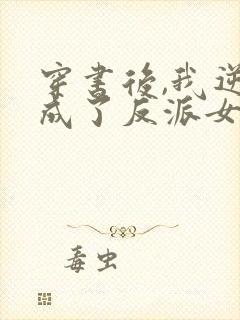 穿書後,我逆
成了反派女
毒虫